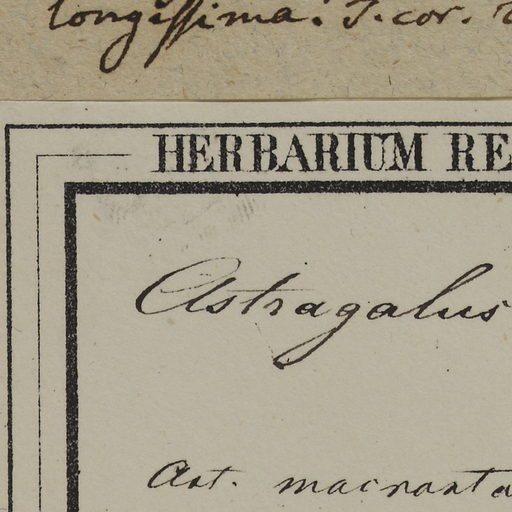 longissima. T. cor.
HERBARIUM RE
Astragalus
Ast. macranta